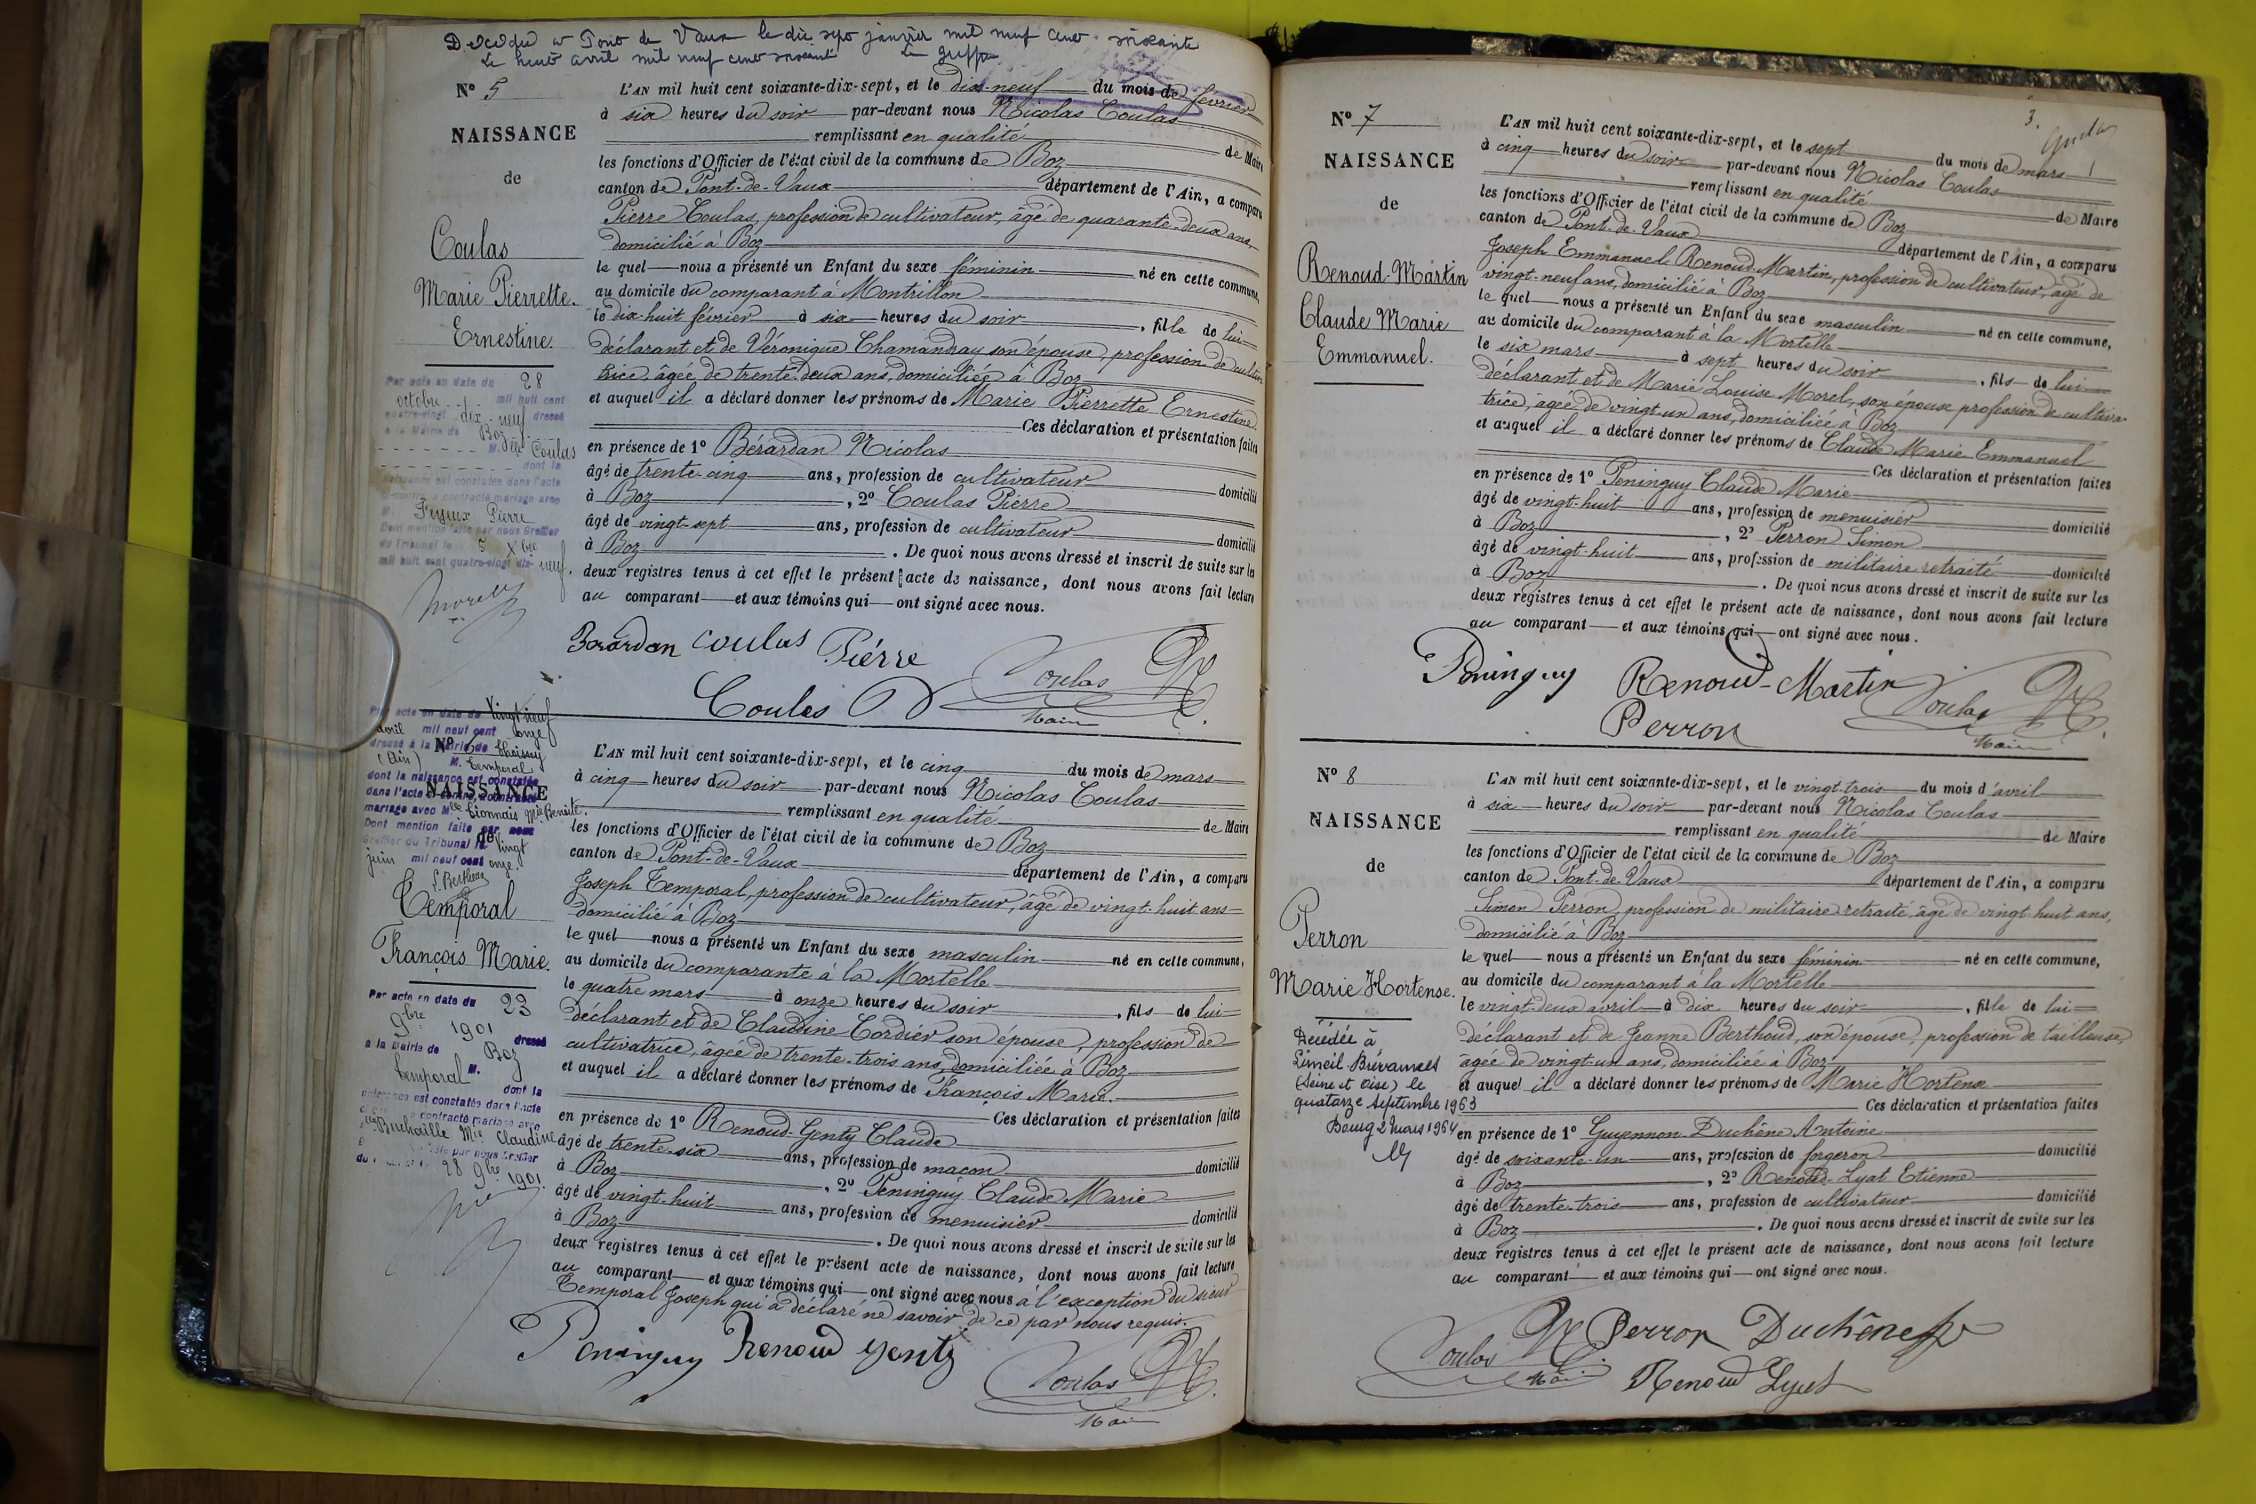 Décédée à Pont de Vaux le dix sept janvier mil neuf cent soixante
Le huit avril mil neuf cent soixante Le greffier
N° 5
NAISSANCE
de
Coulas
Marie Pierrette
Ernestine.
Par acte en date du 28
octobre mil huit cent
quatre-vingt dix-neuf dressé
à la Mairie de Boz
M. Delle Coulas
dont la
naissance est constatée dans l'acte
ci-contre a contracté mariage avec
M. Feyeux Pierre
Dont mention faite par nous Greffier
du Tribunal le 5 Xbre
mil huit cent quatre-vingt dix-neuf.
L'AN mil huit cent soixante-dix-sept, et le dix-neuf du mois de février
à six heures du soir par-devant nous Nicolas Coulas
remplissant en qualité de Maire
les fonctions d'Officier de l'état civil de la commune de Boz
canton de Pont-de-Vaux département de l'Ain, a comparu
Pierre Coulas, profession de cultivateur, âgé de quarante-deux ans,
domicilié à Boz
le quel nous a présenté un Enfant du sexe féminin né en cette commune,
au domicile du comparant à Montrillon
le dix-huit février à six heures du soir, fille de lui
déclarant et de Véronique Chamandray son épouse, profession de cultiva
trice, âgée de trente-deux ans, domiciliée à Boz
et auquel il a déclaré donner les prénoms de Marie Pierrette Ernestine.
Ces déclaration et présentation faites
en présence de 1° Bérardan Nicolas
âgé de trente-cinq ans, profession de cultivateur domicilié
à Boz, 2° Coulas Pierre
âgé de vingt-sept ans, profession de cultivateur domicilié
à Boz. De quoi nous avons dressé et inscrit de suite sur les
deux registres tenus à cet effet le présent acte de naissance, dont nous avons fait lecture
au comparant et aux témoins qui ont signé avec nous.
Bérardan Coulas Piérre
Coulas
Coulas
Maire
N° 6
NAISSANCE
de
Par acte en date du vingt neuf
avril mil neuf cent onze
dressé à la Mairie de Thoissey
(Ain) M. Temporal
dont la naissance est constatée
dans l'acte ci-contre, a contracté
mariage avec Mlle Lionnais Mie Benoite.
Dont mention faite par nous
Greffier du Tribunal le vingt
juin mil neuf cent onze.
Temporal
François Marie.
Par acte en date du 23
9bre 1901 dressé
à la Mairie de Boz
M. Temporal
dont la
naissance est constatée dans l'acte
ci-contre a contracté mariage avec
Buchaille Mie Claudine
faite par nous Greffier
du Tribunal le 28 9bre 1901.
L'AN mil huit cent soixante-dix-sept, et le cinq du mois de mars
à cinq heures du soir par-devant nous Nicolas Coulas
remplissant en qualité de Maire
les fonctions d'Officier de l'état civil de la commune de Boz
canton de Pont-de-Vaux département de l'Ain, a comparu
Joseph Temporal, profession de cultivateur, âgé de vingt-huit ans
domicilié à Boz
le quel nous a présenté un Enfant du sexe masculin né en cette commune,
au domicile du comparante à la Mortelle
le quatre mars à onze heures du soir, fils de lui
déclarant et de Claudine Cordier son épouse, profession de
cultivatrice, âgée de trente-trois ans, domiciliée à Boz
et auquel il a déclaré donner les prénoms de François Marie.
Ces déclaration et présentation faites
en présence de 1° Renoud-Genty Claude
âgé de trente-six ans, profession de maçon domicilié
à Boz, 2° Peninguy Claude Marie
âgé de vingt-huit ans, profession de menuisier domicilié
à Boz. De quoi nous avons dressé et inscrit de suite sur les
deux registres tenus à cet effet le présent acte de naissance, dont nous avons fait lecture
au comparant et aux témoins qui ont signé avec nous à l'exception du sieur
Temporal Joseph qui a déclaré ne savoir de ce par nous requis.
Peninguy Renoud genty
Coulas
Maire
3.
N° 7
NAISSANCE
de
Renoud-Martin
Claude Marie
Emmanuel.
L'AN mil huit cent soixante-dix-sept, et le sept du mois de mars
à cinq heures du soir par-devant nous Nicolas Coulas
remplissant en qualité de Maire
les fonctions d'Officier de l'état civil de la commune de Boz
canton de Pont-de-Vaux département de l'Ain, a comparu
Joseph Emmanuel Renoud-Martin, profession de cultivateur, âgé de
vingt-neuf ans, domicilié à Boz
le quel nous a présenté un Enfant du sexe masculin né en cette commune,
au domicile du comparant à la Mortelle
le six mars à sept heures du soir, fils de lui
déclarant et de Marie Louise Morel, son épouse profession de cultiva-
trice, âgée de vingt-un ans, domiciliée à Boz
et auquel il a déclaré donner les prénoms de Claude Marie Emmanuel
Ces déclaration et présentation faites
en présence de 1° Peninguy Claude Marie
âgé de vingt-huit ans, profession de menuisier domicilié
à Boz, 2° Perron Simon
âgé de vingt-huit ans, profession de militaire retraité domicilié
à Boz. De quoi nous avons dressé et inscrit de suite sur les
deux registres tenus à cet effet le présent acte de naissance, dont nous avons fait lecture
au comparant et aux témoins qui ont signé avec nous.
Peninguy Renoud-Martin
Perron
Coulas
Maire
N° 8
NAISSANCE
de
Perron
Marie Hortense.
Décédée à
Limeil-Brévannes
(Seine et Oise) le
quatorze septembre 1963
Bourg 2 mars 1964
L'AN mil huit cent soixante-dix-sept, et le vingt-trois du mois d'avril
à six heures du soir par-devant nous Nicolas Coulas
remplissant en qualité de Maire
les fonctions d'Officier de l'état civil de la commune de Boz
canton de Pont-de-Vaux département de l'Ain, a comparu
Simon Perron, profession de militaire retraité, âgé de vingt-huit ans,
domicilié à Boz
le quel nous a présenté un Enfant du sexe féminin né en cette commune,
au domicile du comparant à la Mortelle
le vingt-deux avril à dix heures du soir, fille de lui
déclarant et de Jeanne Berthoud, son épouse, profession de tailleuse,
âgée de vingt-un ans, domiciliée à Boz
et auquel il a déclaré donner les prénoms de Marie Hortense
Ces déclaration et présentation faites
en présence de 1° Guyennon-Duchêne Antoine
âgé de soixante-un ans, profession de forgeron domicilié
à Boz, 2° Renoud-Lyat Etienne
âgé de trente-trois ans, profession de cultivateur domicilié
à Boz. De quoi nous avons dressé et inscrit de suite sur les
deux registres tenus à cet effet le présent acte de naissance, dont nous avons fait lecture
au comparant et aux témoins qui ont signé avec nous.
Coulas Perron Duchêne
Maire Renoud Lyat